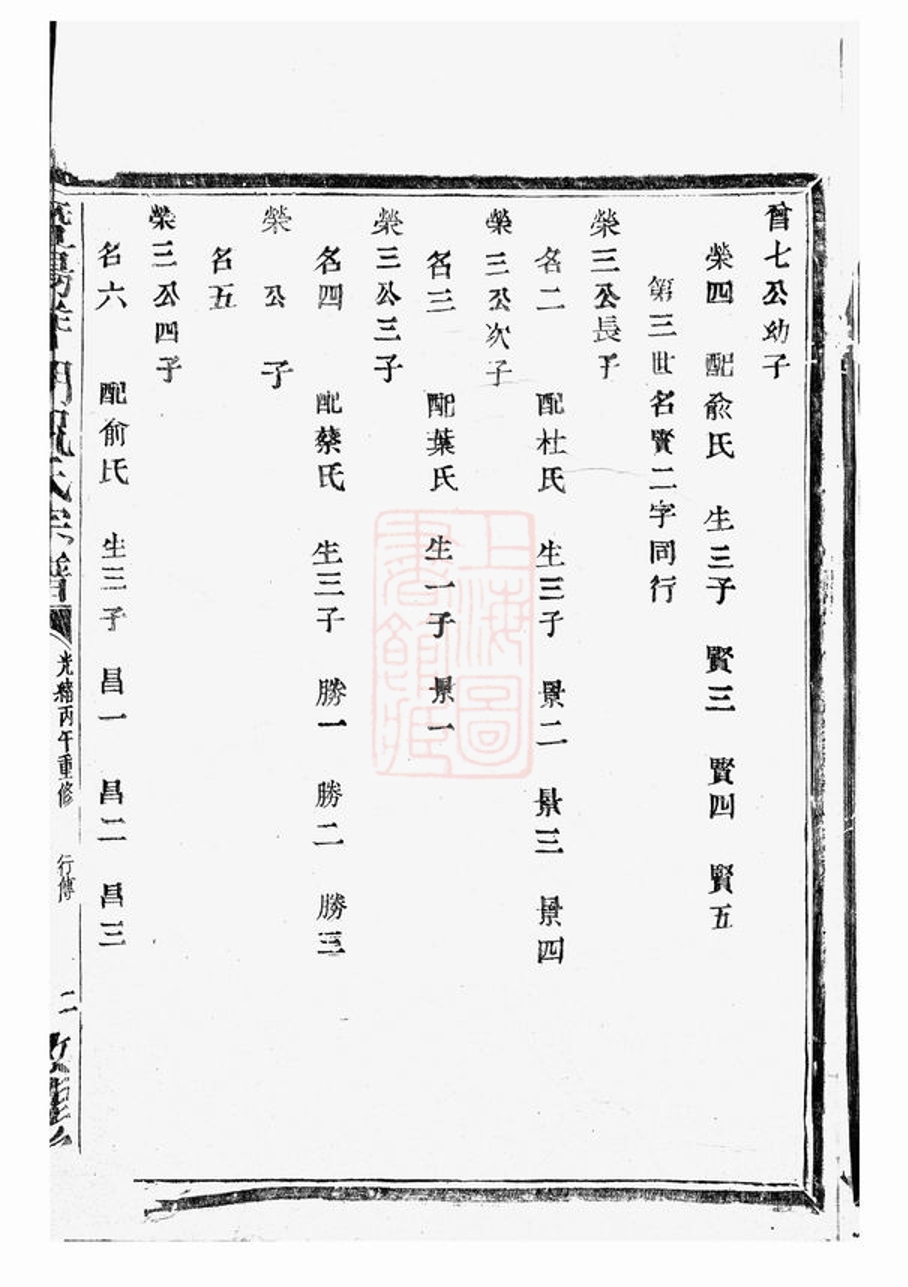 曾七公幼子
榮四 配俞氏 生三子 賢三 賢四 賢五
第三世名賢二字同行
榮三公長子
名二 配杜氏 生三子 景二 景三 景四
榮三公次子
名三 配葉氏 生一子 景一
榮三公三子
名四 配蔡氏 生三子 勝一 勝二 勝三
榮 公 子
名五
榮三公四子
名六 配俞氏 生三子 昌一 昌二 昌三
氏宗譜 光緒丙午重修 行傳 二
上海圖書館藏